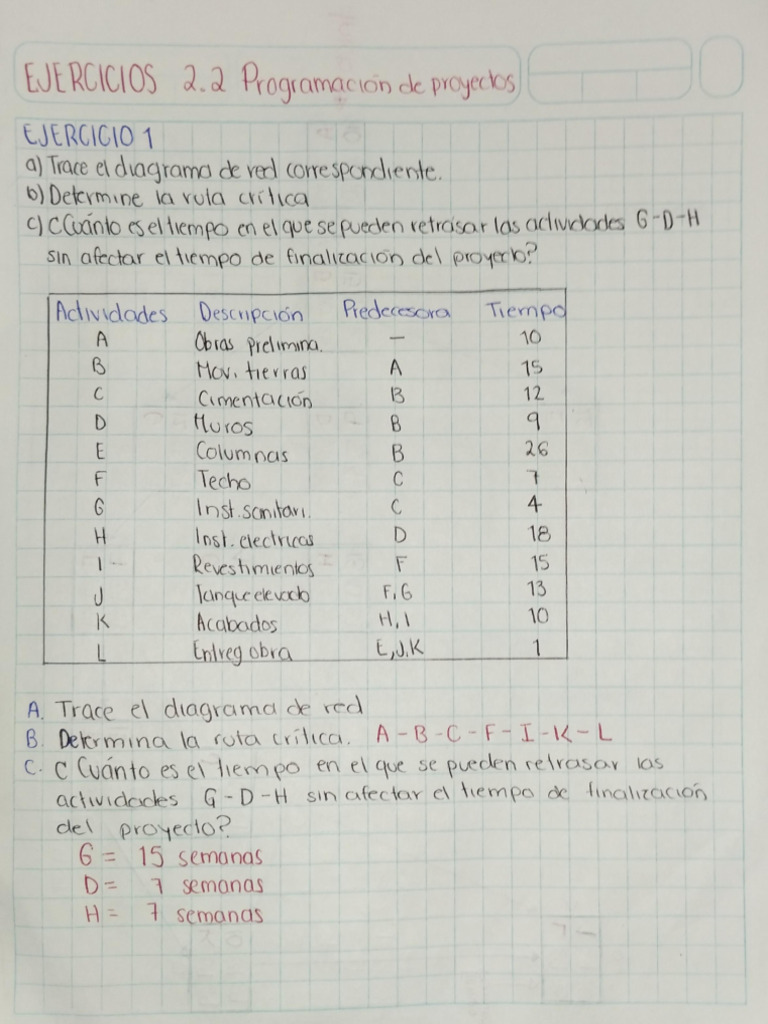 EJERCICIOS 2.2 Programación de proyectos
EJERCICIO 1
a) Trace el diagrama de red correspondiente.
b) Determine la ruta crítica
c) C Cuánto es el tiempo en el que se pueden retrasar las actividades G-D-H
sin afectar el tiempo de finalización del proyecto?
Actividades Descripción Predecesora Tiempo
A Obras prelimina. — 10
B Mov. tierras A 15
C Cimentación B 12
D Muros B 9
E Columnas B 26
F Techo C 7
G Inst. sanitari. C 4
H Inst. electricas D 18
I Revestimientos F 15
J Tanque elevado F, G 13
K Acabados H, I 10
L Entreg obra E, J, K 1
A. Trace el diagrama de red
B. Determina la ruta crítica. A-B-C-F-I-K-L
C. C Cuánto es el tiempo en el que se pueden retrasar las
actividades G-D-H sin afectar el tiempo de finalización
del proyecto?
G = 15 semanas
D = 7 semanas
H = 7 semanas